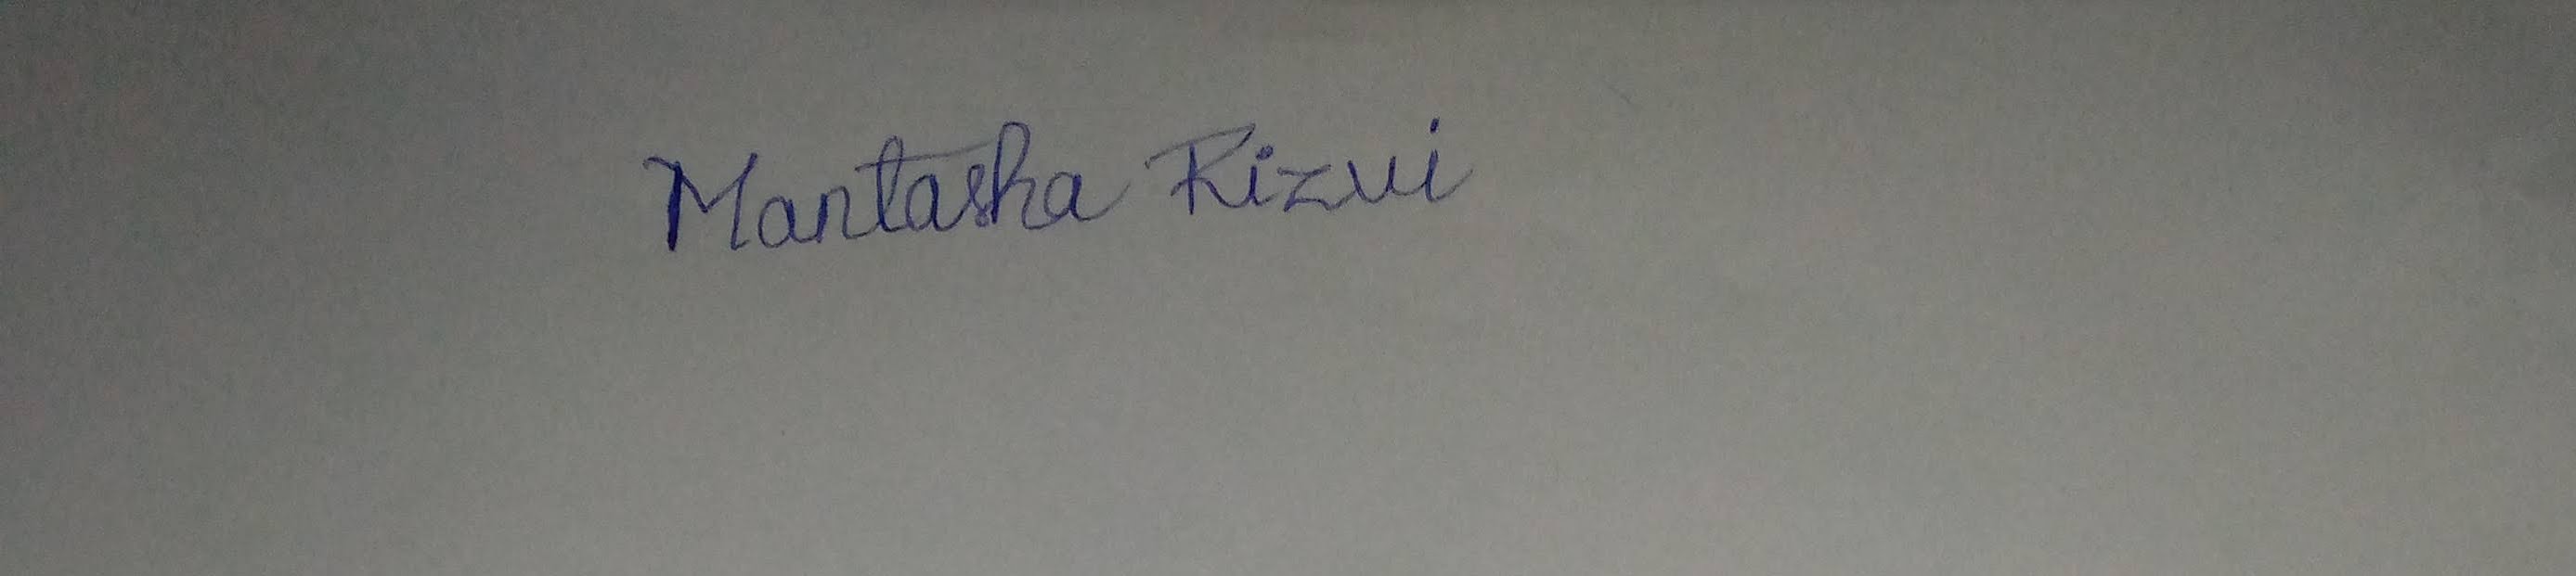 Mantasha Rizvi